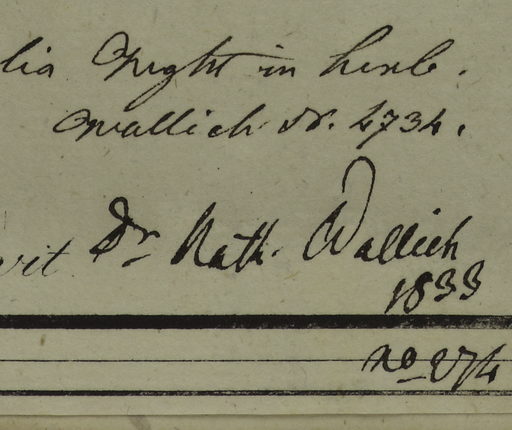 lia Wight in herb.
Wallich N. 4734.
vit Dr Nath. Wallich
1833
no 274